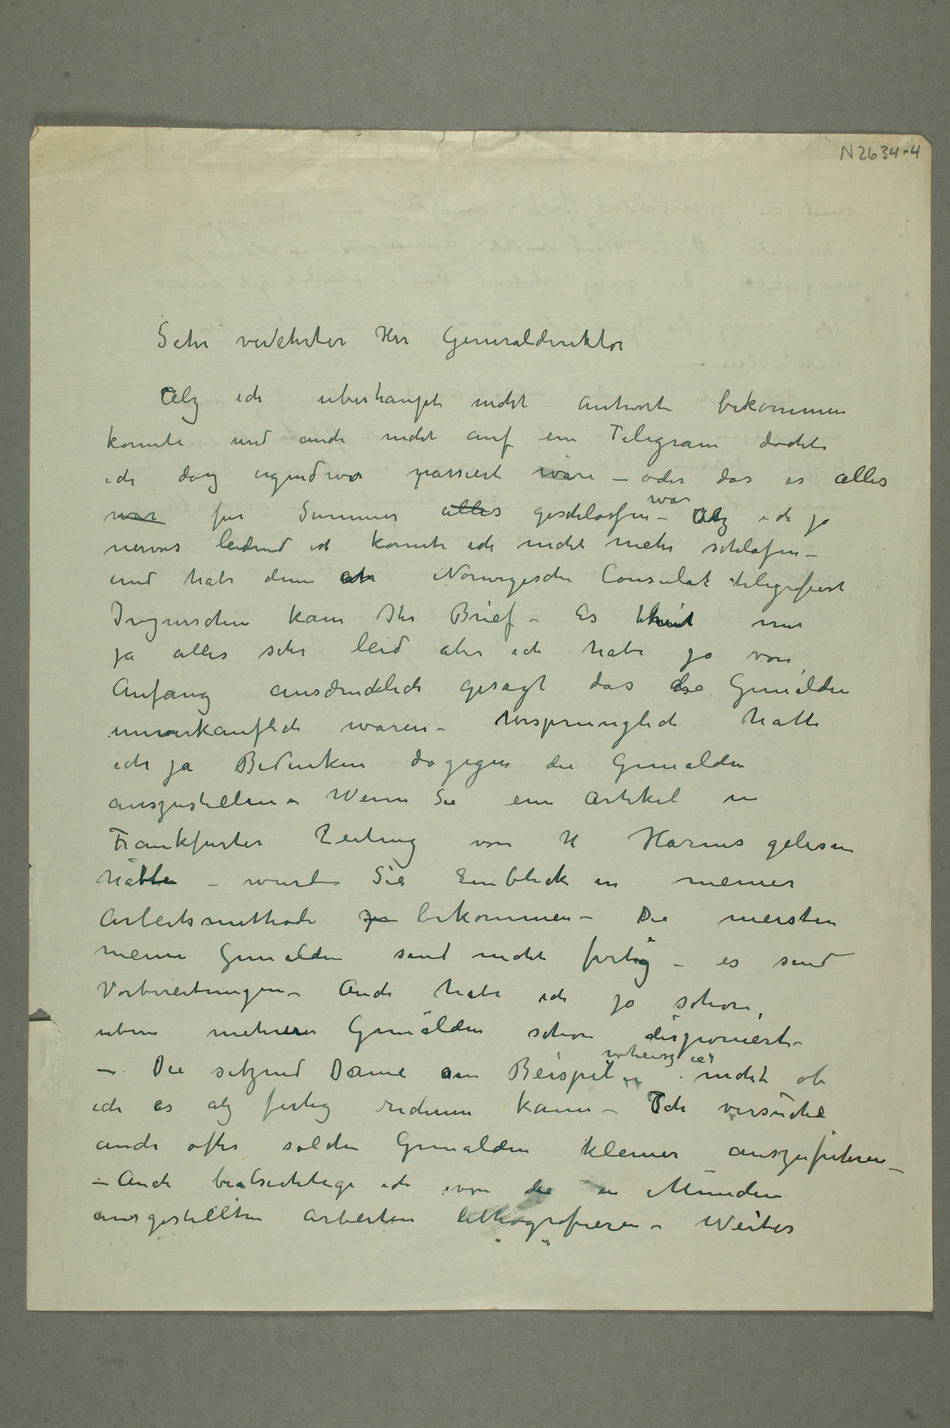 N 2634-4
Sehr verehrter Herr Generaldirektor
Alz ich uberhaupt nicht Antwort bekommen
konnte und auch nicht auf ein Telegram dachte
ich daz irgendwo passiert wäre – oder das es alles
war fur Summer alles geschlossen war – Alz ich ja
nervös leidend ist konnte ich nicht mehr schlafen –
und habe denn Norwegische Consulat telegrafiert
Inzwischen kam Ihr Brief – Es thut mir
ja alles sehr leid aber ich habe ja von
Anfang ausdrucklich gesagt das die Gemälden
unverkauflich waren – Ursprunglich hatte
ich ja Bedenken dagegen die Gemälden
auszustellen – Wenn Sie ein Artikel in
Frankfurter Zeitung von H Harms gelesen
hätten – wurde Sie Einblick in meiner
Arbeitsmethode zu bekommen – Die meisten
meine Gemälden sind nicht fertig – es sind
Vorbereitungen – Auch habe ich ja schon,
uben mehrere Gemälden schon disponiert –
– Die sitzend Dame am Beispiel weisz ich nicht ob
ich es alz fertig rechnen kann – Ich versuche
auch öfter solche Gemälden kleiner auszufuhren –
– Auch beabsichtige ich von die in Munchen
ausgestellten Arbeiten lithografieren – Weiter